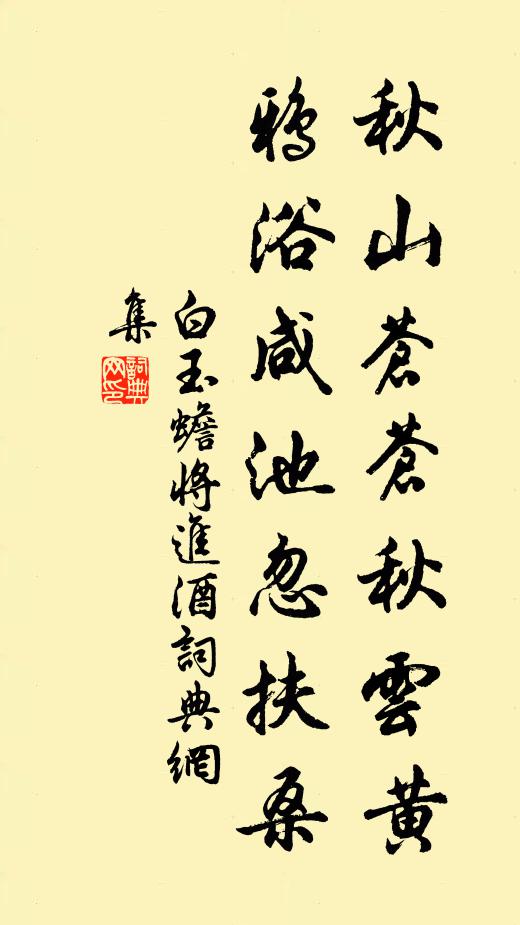 秋山蒼蒼秋雲黃
鴉浴咸池忽扶桑
白玉蟾將進酒詞典網
集
詞典
网印